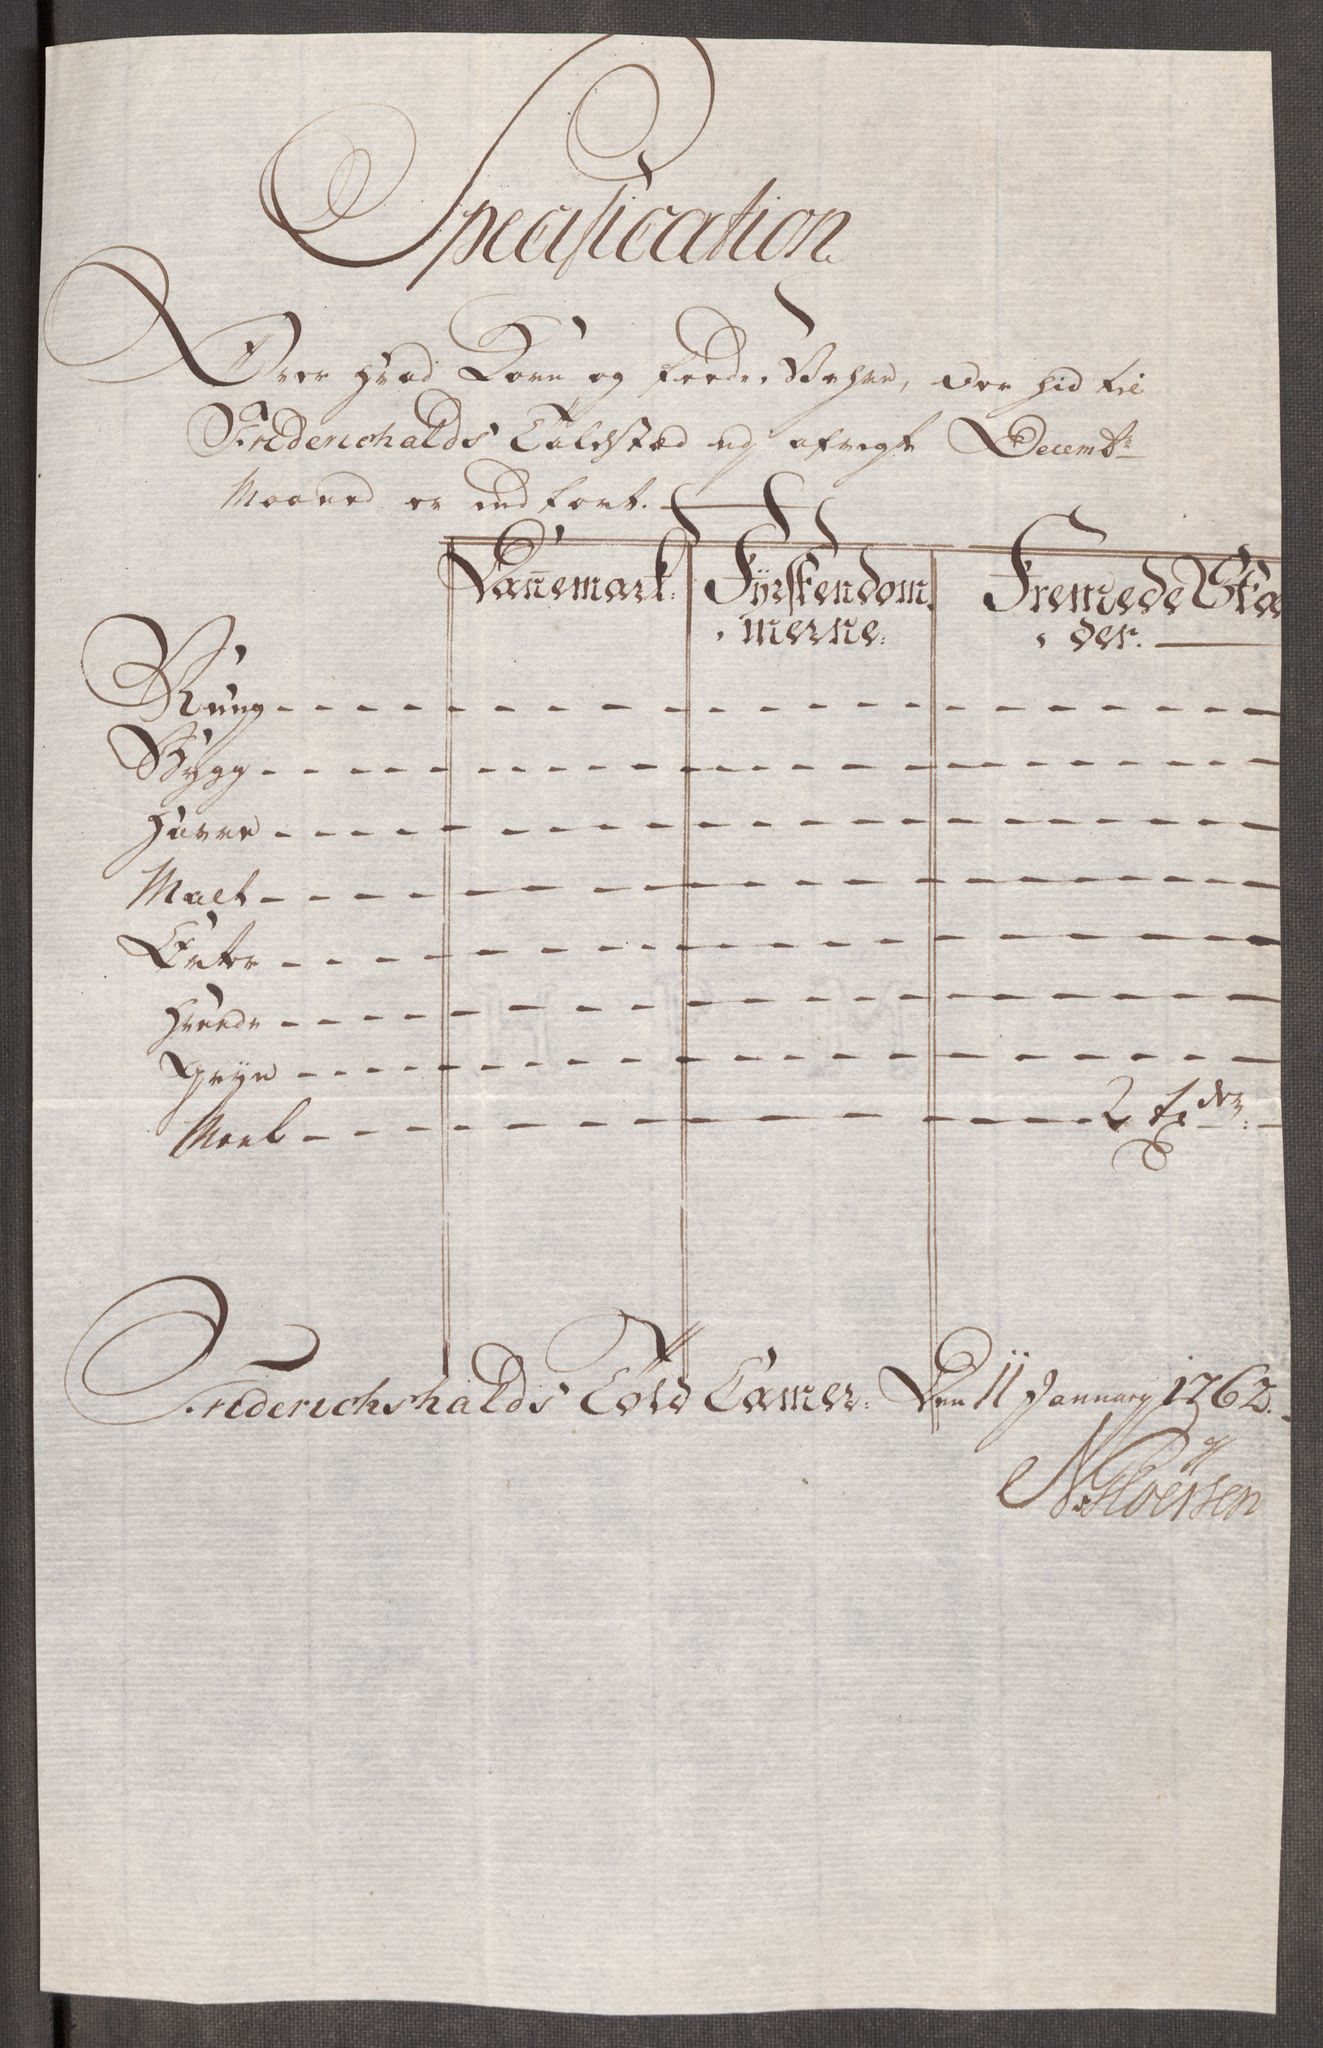 Specification
Over hvad Korn og Feede Vahre, der hid til
Friderichalds Toldstæd udj afvigte Decembr
Maaned er indført.
Dañemark: Fÿrstendom Fremmede Stæ
merne: der.
Rug
Bygg
Havre
Malt
Erter
Hvede
Gryn
Meel 2 tdr
Friderichshalds Told Camer: Den 11 January 1762.